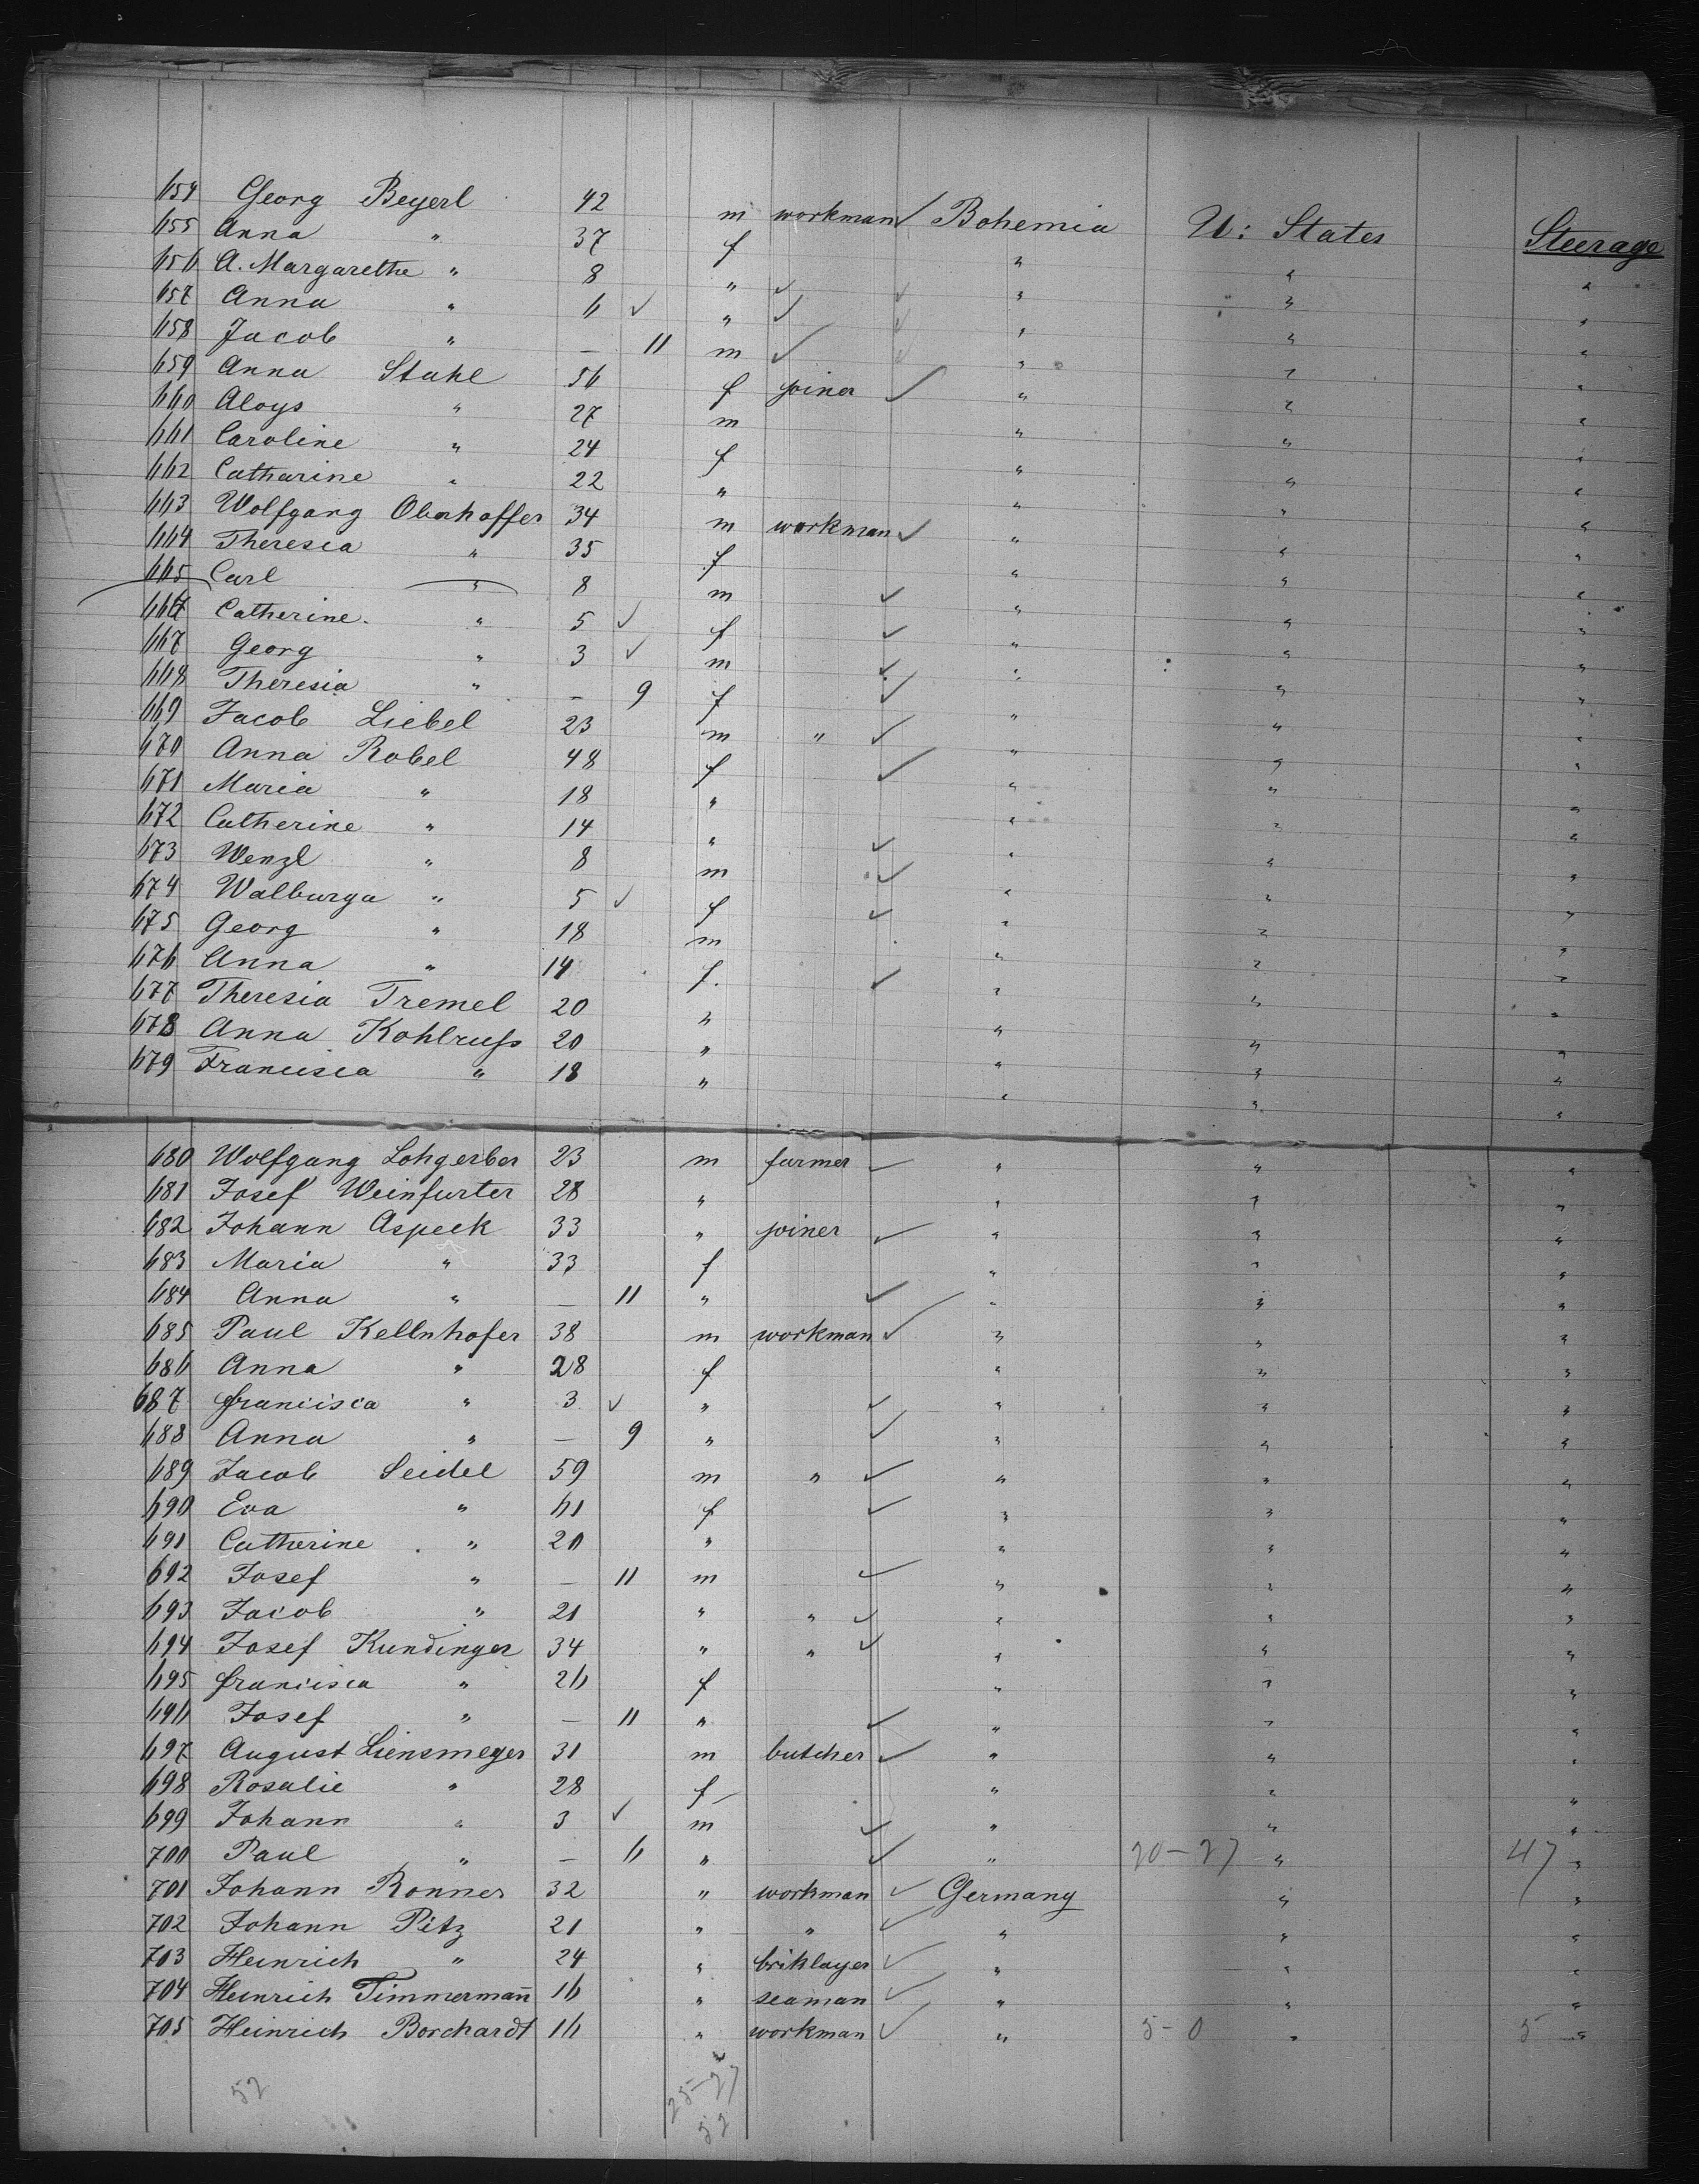 654 Georg Beyerl 42 m workman Bohemia U: States Steerage
655 Anna " 37 f " " "
656 A. Margarethe " 8 " " " "
657 Anna " 6 " " " "
658 Jacob " — 11 m " " "
659 Anna Stahl 56 f joiner " " "
660 Aloys " 27 m " " "
661 Caroline " 24 f " " "
662 Catharine " 22 " " " "
663 Wolfgang Oberhoffer 34 m workman " " "
664 Theresia " 35 f " " "
665 Carl " 8 m " " "
666 Catherine " 5 f " " "
667 Georg " 3 m " " "
668 Theresia " — 9 f " " "
669 Jacob Liebel 23 m " " " "
670 Anna Robel 48 f " " "
671 Maria " 18 " " " "
672 Catherine " 14 " " " "
673 Wenzl " 8 m " " "
674 Walburga " 5 f " " "
675 Georg " 18 m " " "
676 Anna " 14 f. " " "
677 Theresia Tremel 20 " " " "
678 Anna Kohlruss 20 " " " "
679 Francisca " 18 " " " "
680 Wolfgang Lohgerber 23 m farmer " " "
681 Josef Weinfurter 28 " " " "
682 Johann Aspeck 33 " joiner " " "
683 Maria " 33 f " " "
684 Anna " — 11 " " " "
685 Paul Kellnhofer 38 m workman " " "
686 Anna " 28 f " " "
687 Francisca " 3 " " " "
688 Anna " — 9 " " " "
689 Jacob Seidel 59 m " " " "
690 Eva " 61 f " " "
691 Catherine " 20 " " " "
692 Josef " — 11 m " " "
693 Jacob " 21 " " " " "
694 Josef Kundinger 34 " " " " "
695 Francisca " 26 f " " "
696 Josef " — 11 " " " "
697 August Liensmeyer 31 m butcher " " "
698 Rosalie " 28 f " " "
699 Johann " 3 m " " "
700 Paul " — 6 " " 20-27 " 47 "
701 Johann Ronner 32 " workman Germany " "
702 Johann Pitz 21 " " " " "
703 Heinrich " 24 " briklayer " " "
704 Heinrich Timmermañ 16 " seaman " " "
705 Heinrich Borchardt 16 " workman " 5-0 " 5 "
52 25-27
52